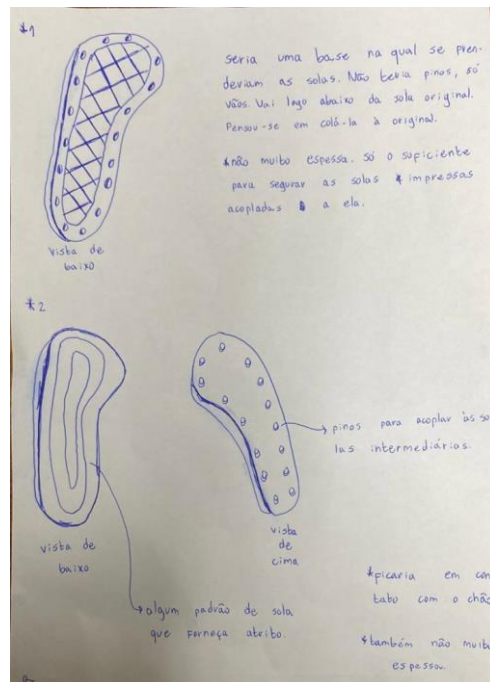 *1
seria uma base na qual se pren-
deviam as solas. Não teria pinos, só
vãos. Vai logo abaixo da sola original.
Pensou-se em colá-la à original.
*não muito espessa. só o suficiente
para segurar as solas impressas
acopladas a ela.
vista de
baixo
*2
pinos para acoplar às so
las intermediárias.
vista de
baixo
vista
de
cima
algum padrão de sola
que forneça atrito.
*ficaria em con
tato com o chão
*também não muito
espessa.